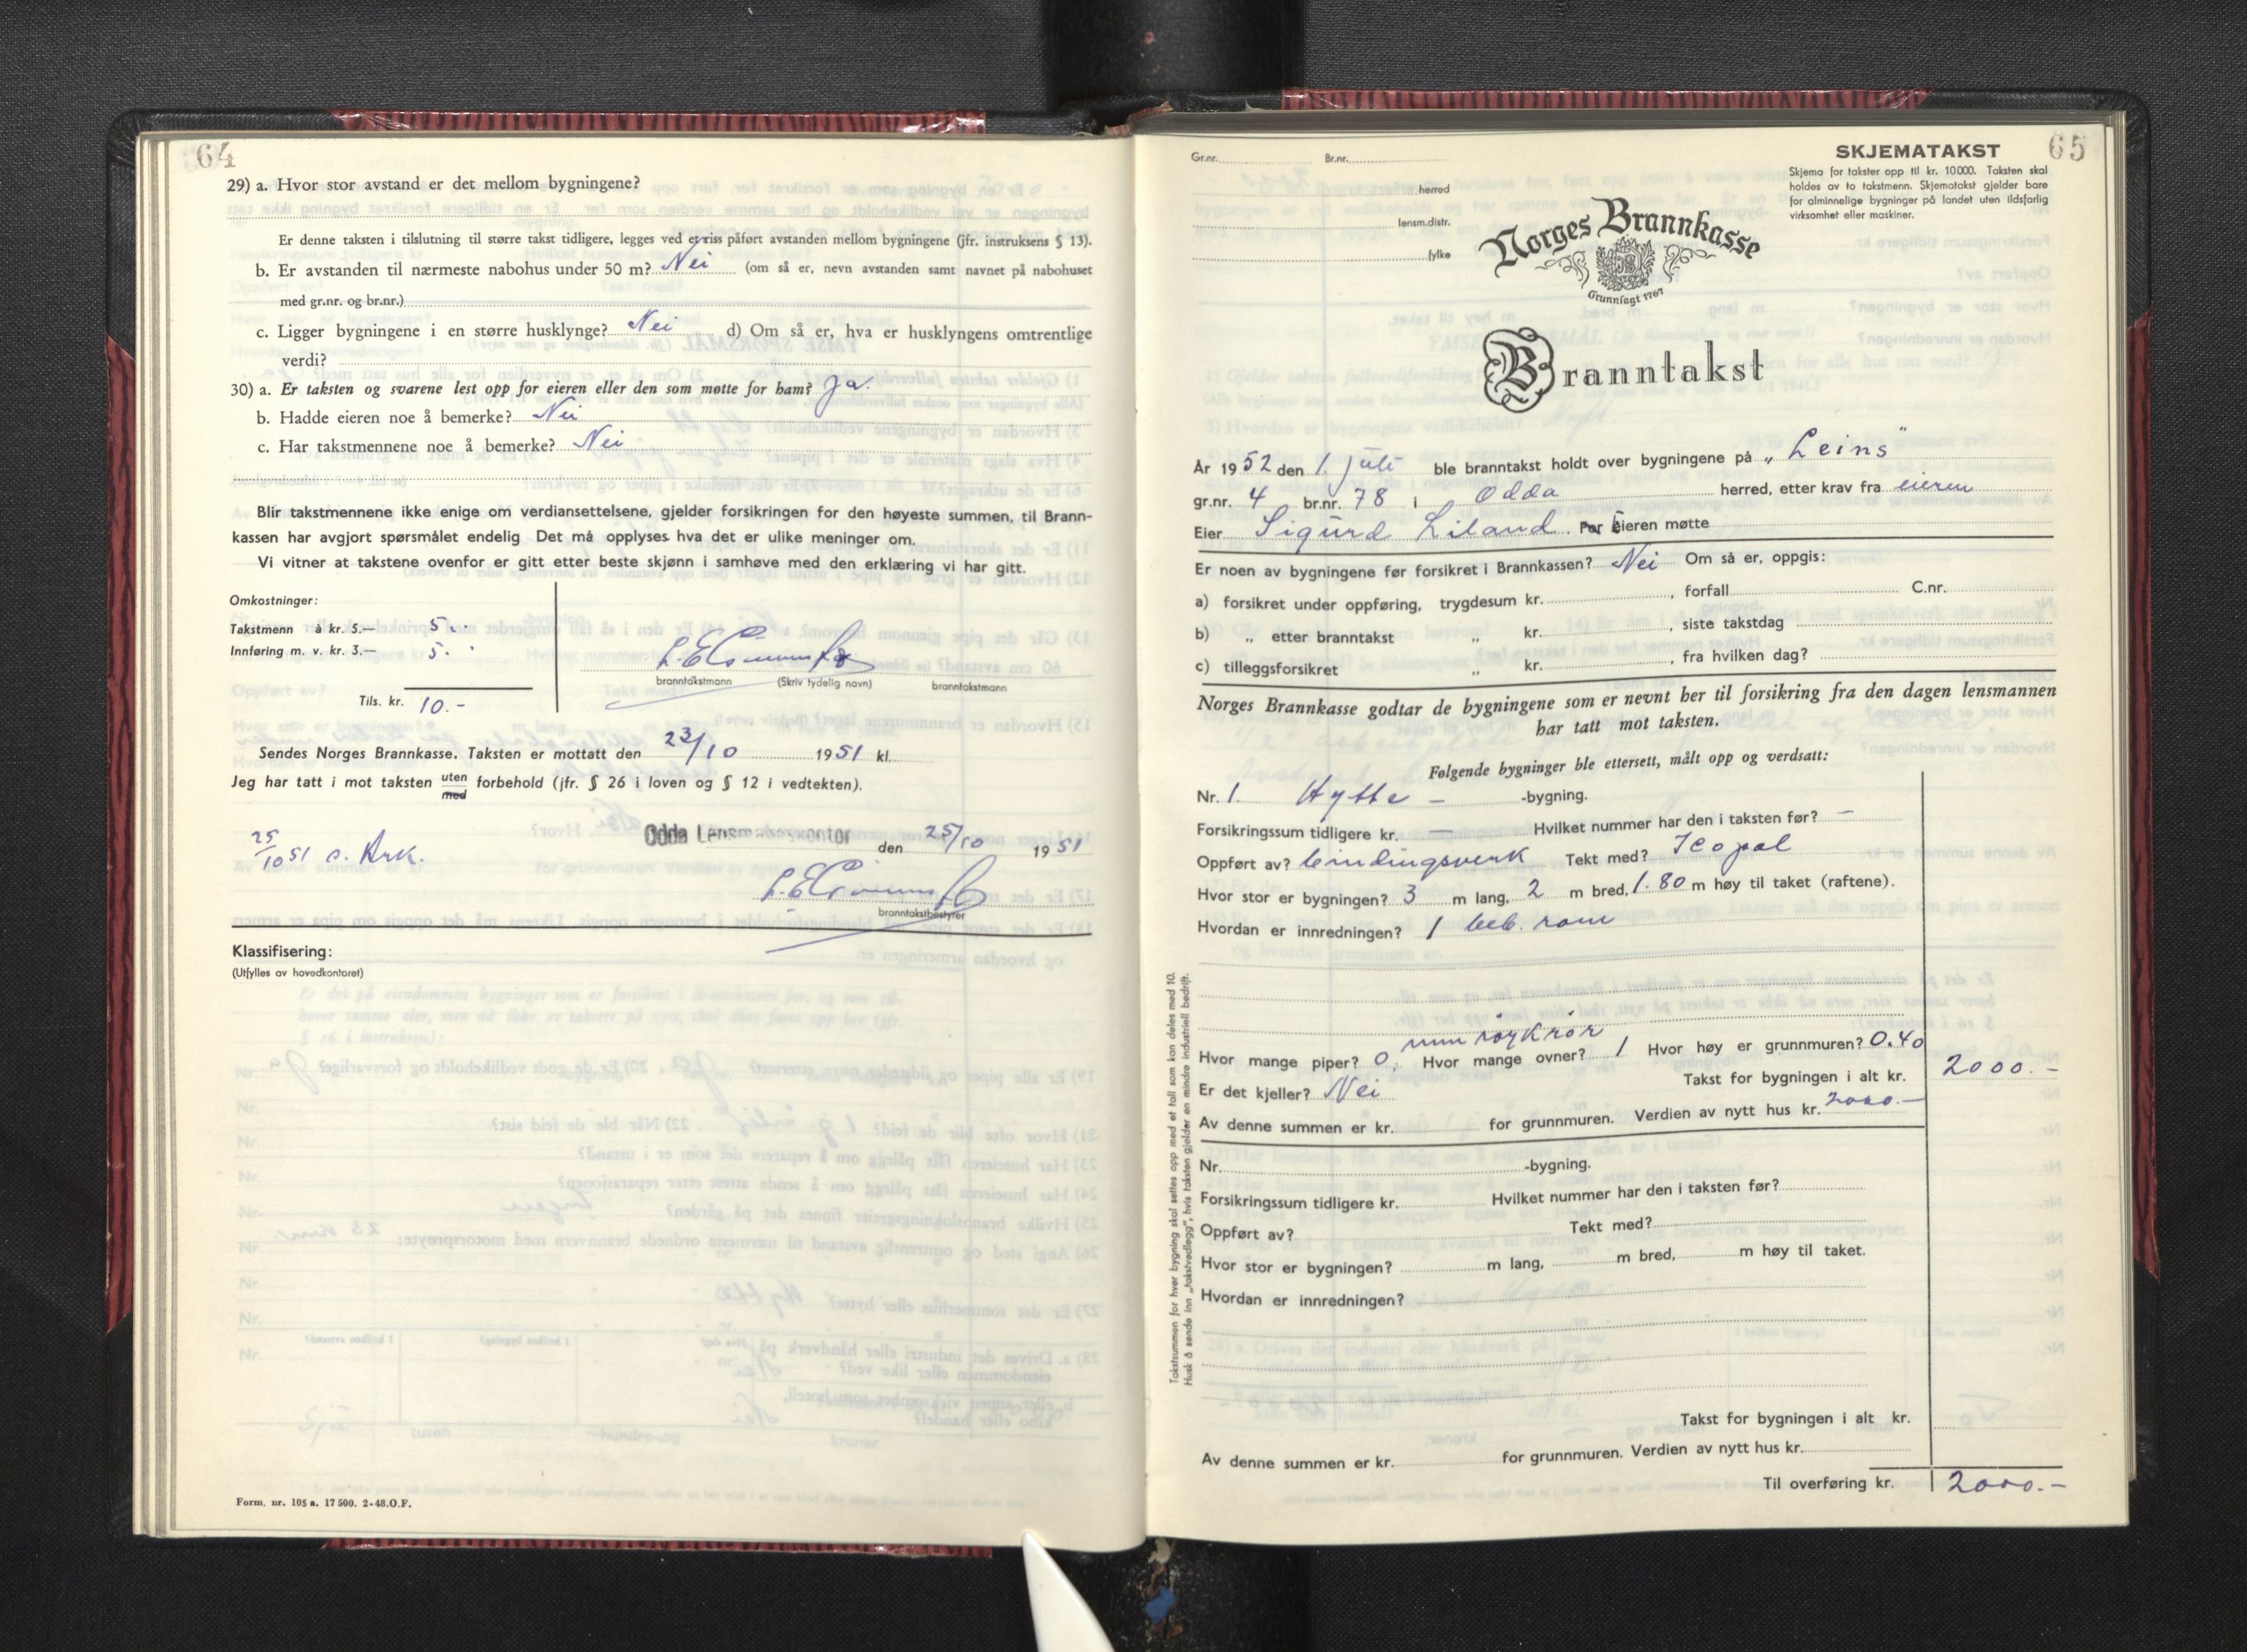 64
29) a. Hvor stor avstand er det mellom bygningene?
Er denne taksten i tilslutning til større takst tidligere, legges ved et riss påført avstanden mellom bygningene (jfr. instruksens § 13).
b. Er avstanden til nærmeste nabohus under 50 m? Nei (om så er, nevn avstanden samt navnet på nabohuset
med gr.nr. og br.nr.)
c. Ligger bygningene i en større husklynge? Nei d) Om så er, hva er husklyngens omtrentlige
verdi?
30) a. Er taksten og svarene lest opp for eieren eller den som møtte for ham? Ja.
b. Hadde eieren noe å bemerke? Nei
c. Har takstmennene noe å bemerke? Nei
Blir takstmennene ikke enige om verdiansettelsene, gjelder forsikringen for den høyeste summen, til Brann-
kassen har avgjort spørsmålet endelig Det må opplyses hva det er ulike meninger om.
Vi vitner at takstene ovenfor er gitt etter beste skjønn i samhøve med den erklæring vi har gitt.
Omkostninger:
Takstmenn à kr. 5.— 5.
Innføring m. v. kr. 3.— 5.
branntakstmann (Skriv tydelig navn) branntakstmann
Tils. kr. 10.-
Sendes Norges Brannkasse. Taksten er mottatt den 23/10 1951 kl.
Jeg har tatt i mot taksten uten forbehold (jfr. § 26 i loven og § 12 i vedtekten).
med
25/10 51
Odda Lensmannskontor den 25/10 1951
branntakstbestyrer
Klassifisering:
(Utfylles av hovedkontoret)
Form. nr. 105 a. 17 500. 2-48.O.F.
65
SKJEMATAKST
Skjema for takster opp til kr. 10000. Taksten skal
holdes av to takstmenn. Skjematakst gjelder bare
for alminnelige bygninger på landet uten ildsfarlig
virksomhet eller maskiner.
Gr.nr. Br.nr.
herred
lensm.distr.
fylke
Norges Brannkasse
Grunnlagt 1767
Branntakst
År 1952 den 1. juli ble branntakst holdt over bygningene på „Leins"
gr.nr. 4 br.nr. 78 i Odda herred, etter krav fra eieren
Eier Sigurd Liland. For Eieren møtte
Er noen av bygningene før forsikret i Brannkassen? Nei Om så er, oppgis:
a) forsikret under oppføring, trygdesum kr. , forfall C.nr.
b) „ etter branntakst „ kr. , siste takstdag
c) tilleggsforsikret „ kr. , fra hvilken dag?
Norges Brannkasse godtar de bygningene som er nevnt her til forsikring fra den dagen lensmannen
har tatt mot taksten.
Følgende bygninger ble ettersett, målt opp og verdsatt:
Nr. 1. Hytte - -bygning.
Forsikringssum tidligere kr. — Hvilket nummer har den i taksten før? —
Oppført av? bindingsverk Tekt med? Icopal
Hvor stor er bygningen? 3 m lang, 2 m bred, 1.80 m høy til taket (raftene).
Hvordan er innredningen? 1 beb. rom
røykrör
Hvor mange piper? 0, Hvor mange ovner? 1 Hvor høy er grunnmuren? 0.40
Er det kjeller? Nei Takst for bygningen i alt kr. 2000.-
Av denne summen er kr. for grunnmuren. Verdien av nytt hus kr. 2000.-
Nr. -bygning.
Forsikringssum tidligere kr. Hvilket nummer har den i taksten før?
Oppført av? Tekt med?
Hvor stor er bygningen? m lang, m bred, m høy til taket.
Hvordan er innredningen?
Takst for bygningen i alt kr.
Av denne summen er kr. for grunnmuren. Verdien av nytt hus kr.
Til overføring kr. 2000.-
Takstsummen for hver bygning skal settes opp med et tall som kan deles med 10.
Husk å sende inn „takstvedlegg", hvis taksten gjelder en mindre industriell bedrift.